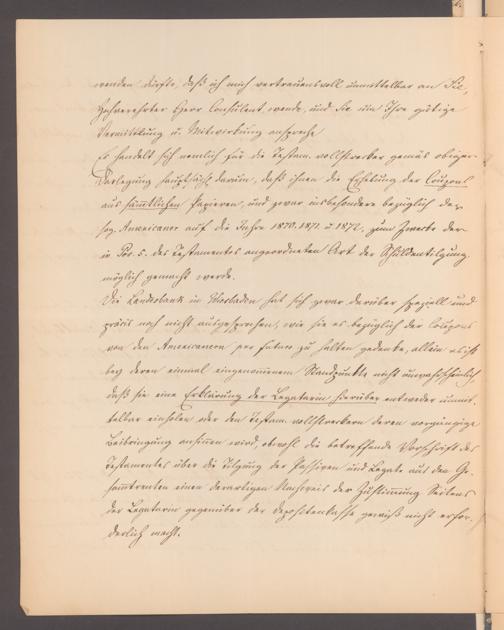 wenden dürfte, daß ich mich vertrauensvoll unmittelbar an Sie,
Hochverehrter Herr Consulent, wende, und Sie um Ihre gütige
Vermittlung u. Mitwirkung anspreche
Es handelt sich nemlich für die Testam. vollstrecker gemäs obiger
Darlegung hauptsächl. darum, daß ihnen die Erhebung der Coupons
aus sämmtlichen Papieren, und zwar insbesondere bezüglich der
sog. Americaner auf die Jahre 1870. 1871. u. 1872, zum Zwecke der
in Pos. 5. des Testamentes angeordneten Art der Schuldentilgung
möglich gemacht werde.
Die Landesbank in Wiesbaden hat sich zwar darüber speziell und
präcis noch nicht ausgesprochen, wie sie es bezüglich der Coupons
von den Americanern per futuro zu halten gedenke, allein es ist
bey deren einmal eingenommenem Standpunkte nicht unwahrscheinlich,
daß sie eine Erklärung der Legatarin hierüber entweder unmit-
telbar einholen oder den Testam. vollstreckern deren vorgängige
Beibringung ansinnen wird, obwohl die betreffende Vorschrift des
Testamentes über die Tilgung der Passiven und Legate aus den Ge-
sammtrenten einen derartigen Nachweis der Zustimmung Seitens
der Legatarin gegenüber der Depositenkasse gewiß nicht erfor-
derlich macht.